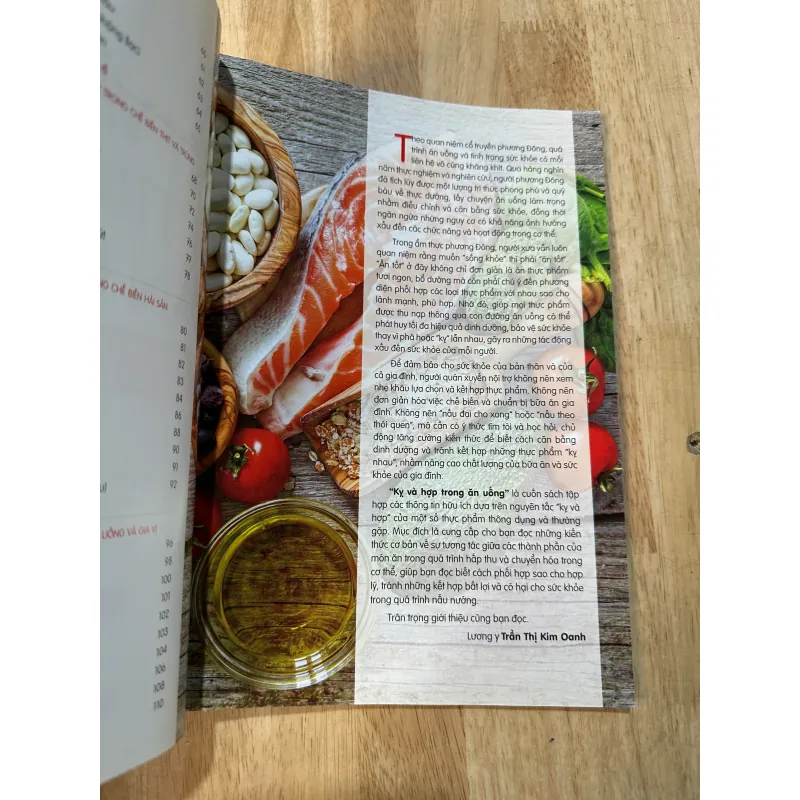 60
61
62
63
64
65
TRONG CHẾ BIẾN THỊT VÀ TRỨNG
68
70
72
74
76
97
98
CHẾ BIẾN HẢI SẢN
80
81
82
83
84
86
88
90
91
92
UỐNG VÀ GIA VỊ
96
98
100
101
102
103
104
106
108
110
Theo quan niệm cổ truyền phương Đông, quá
trình ăn uống và tình trạng sức khỏe có mối
liên hệ vô cùng khăng khít. Qua hàng nghìn
năm thực nghiệm và nghiên cứu, người phương Đông
đã tích lũy được một lượng tri thức phong phú và quý
báu về thực dưỡng, lấy chuyện ăn uống làm trọng
nhằm điều chỉnh và cân bằng sức khỏe, đồng thời
ngăn ngừa những nguy cơ có khả năng ảnh hưởng
xấu đến các chức năng và hoạt động trong cơ thể.
Trong ẩm thực phương Đông, người xưa vẫn luôn
quan niệm rằng muốn "sống khỏe" thì phải "ăn tốt".
"Ăn tốt" ở đây không chỉ đơn giản là ăn thực phẩm
tươi ngon, bổ dưỡng mà còn phải chú ý đến phương
diện phối hợp các loại thực phẩm với nhau sao cho
lành mạnh, phù hợp. Nhờ đó, giúp mọi thực phẩm
được thu nạp thông qua con đường ăn uống có thể
phát huy tối đa hiệu quả dinh dưỡng, bảo vệ sức khỏe
thay vì phá hoặc "kỵ" lẫn nhau, gây ra những tác động
xấu đến sức khỏe của mỗi người.
Để đảm bảo cho sức khỏe của bản thân và của
cả gia đình, người quán xuyến nội trợ không nên xem
nhẹ khâu lựa chọn và kết hợp thực phẩm. Không nên
đơn giản hóa việc chế biến và chuẩn bị bữa ăn gia
đình. Không nên "nấu đại cho xong" hoặc "nấu theo
thói quen", mà cần có ý thức tìm tòi và học hỏi, chủ
động tăng cường kiến thức để biết cách cân bằng
dinh dưỡng và tránh kết hợp những thực phẩm "kỵ
nhau", nhằm nâng cao chất lượng của bữa ăn và sức
khỏe của gia đình.
"Kỵ và hợp trong ăn uống" là cuốn sách tập
hợp các thông tin hữu ích dựa trên nguyên tắc "kỵ và
hợp" của một số thực phẩm thông dụng và thường
gặp. Mục đích là cung cấp cho bạn đọc những kiến
thức cơ bản về sự tương tác giữa các thành phần của
món ăn trong quá trình hấp thu và chuyển hóa trong
cơ thể, giúp bạn đọc biết cách phối hợp sao cho hợp
lý, tránh những kết hợp bất lợi và có hại cho sức khỏe
trong quá trình nấu nướng.
Trân trọng giới thiệu cùng bạn đọc.
Lương y Trần Thị Kim Oanh